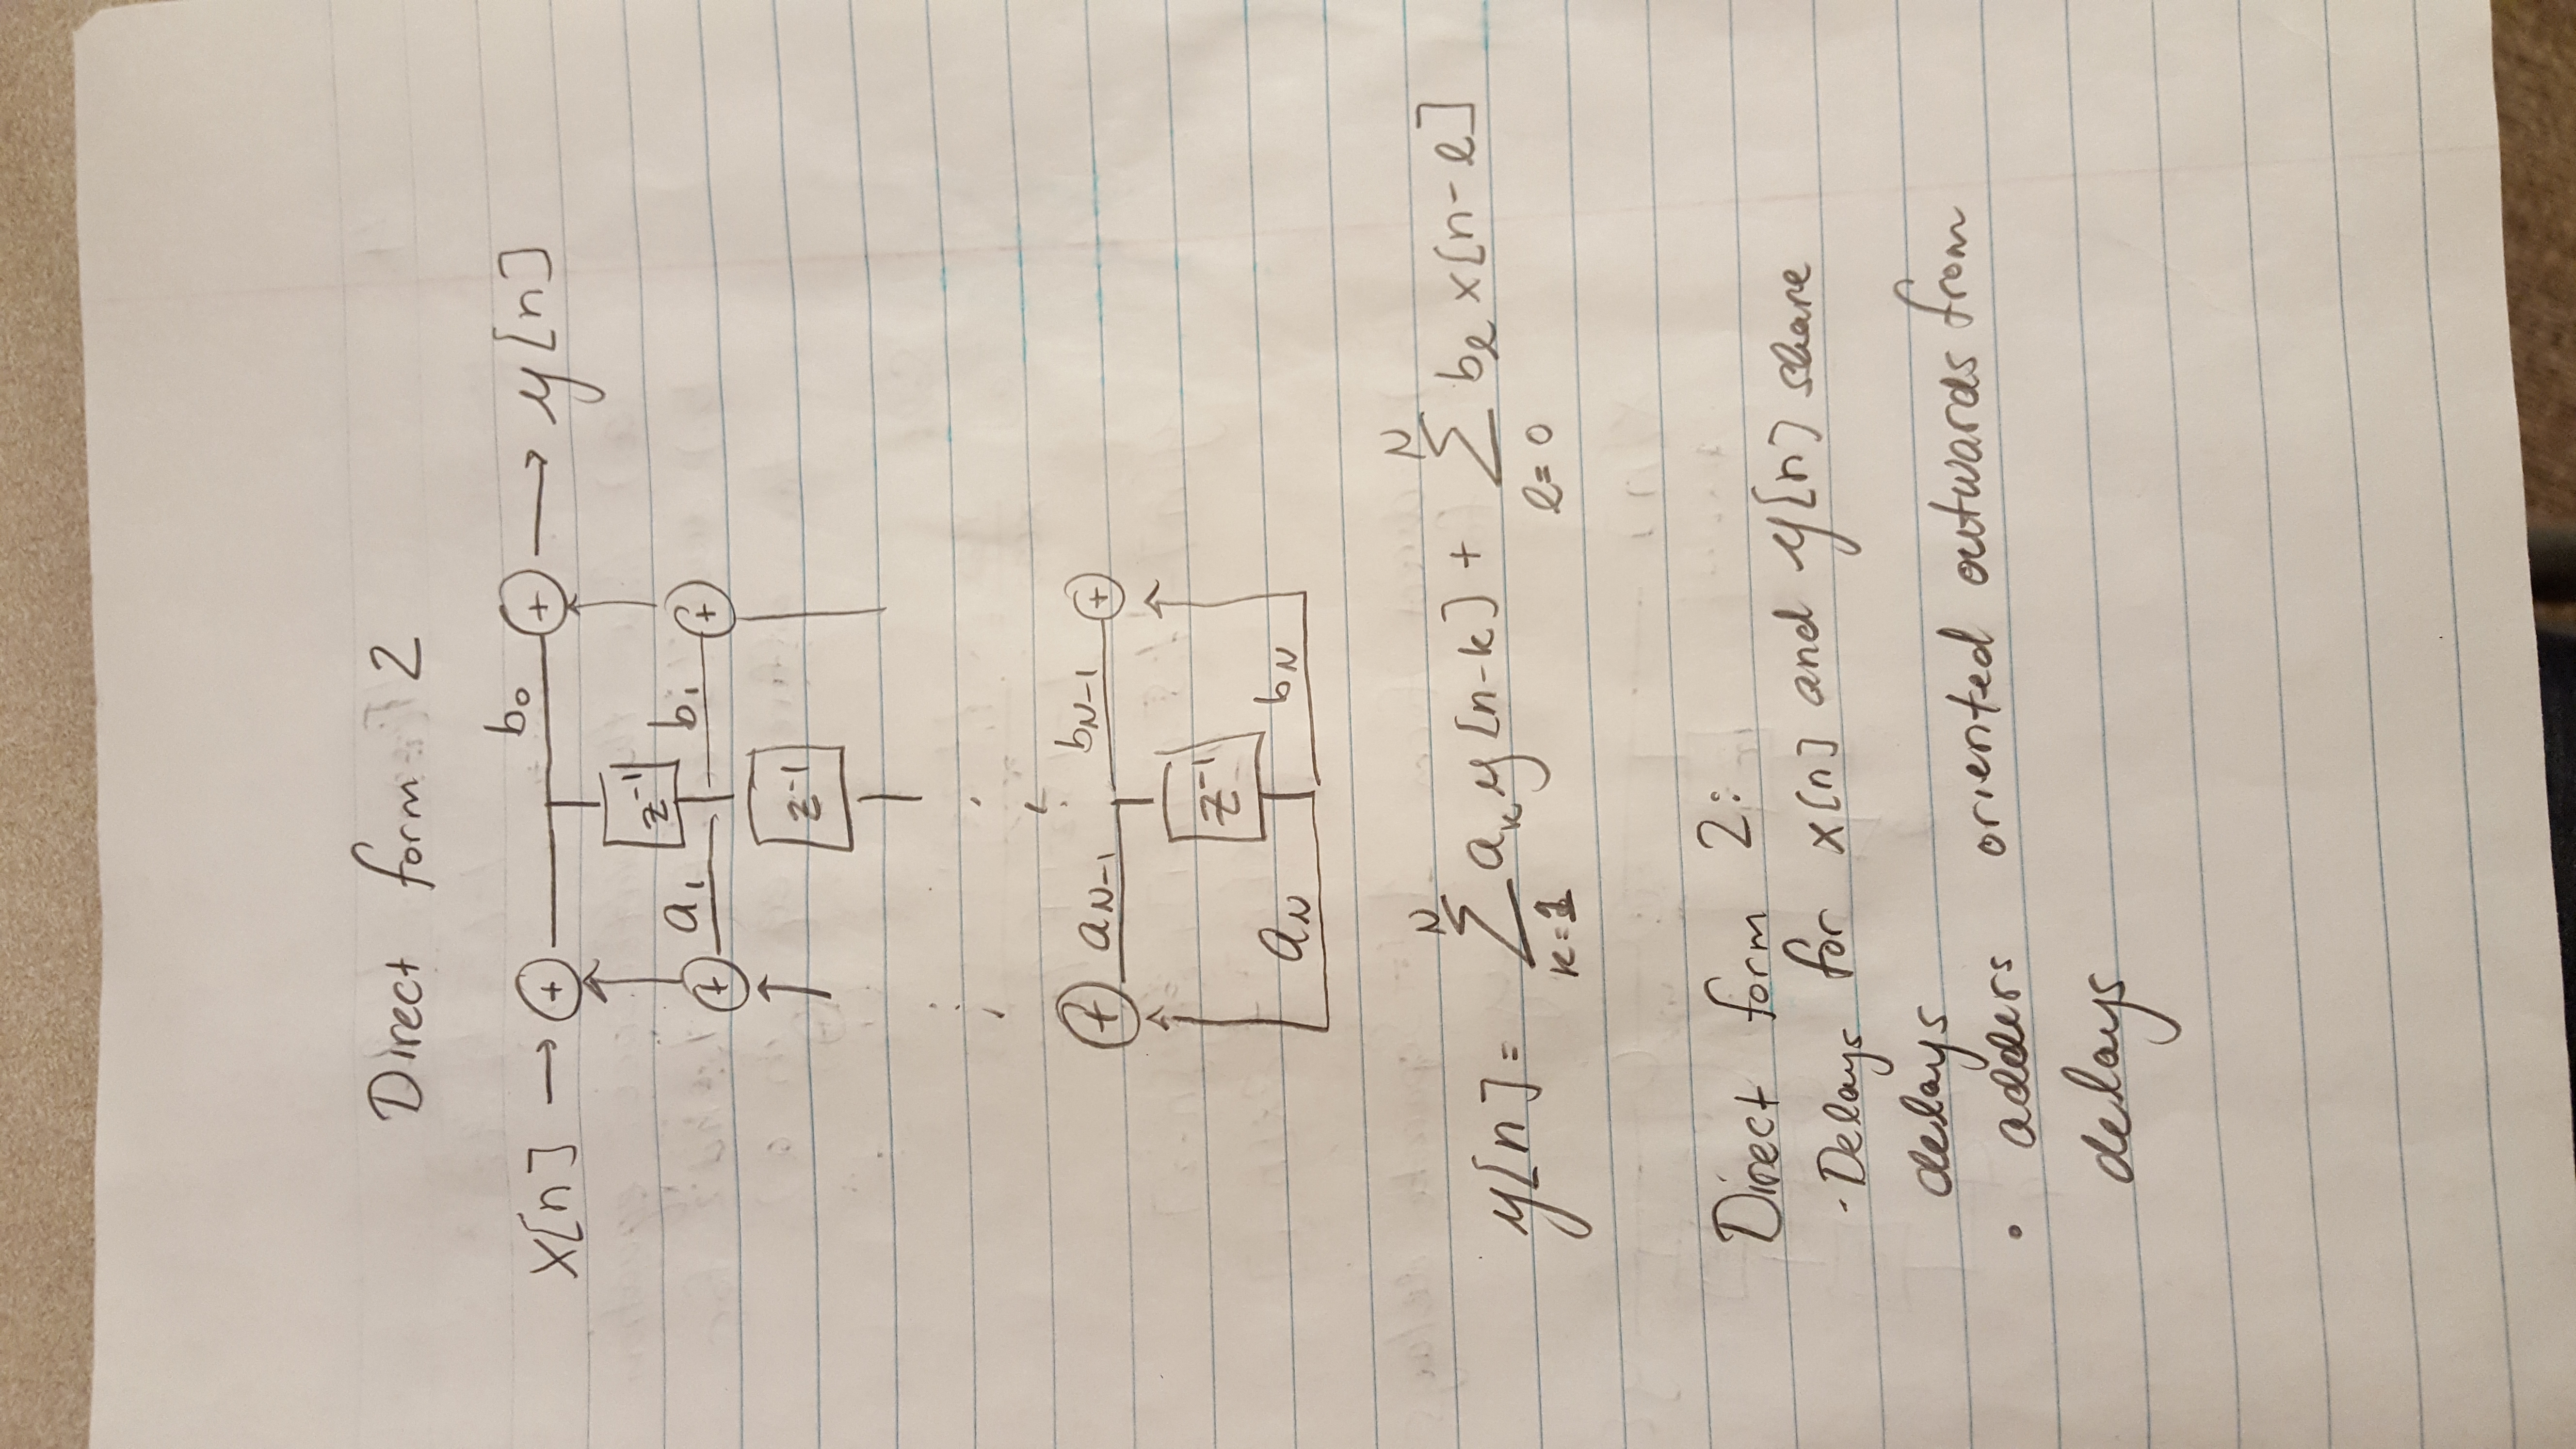 Direct form 2
x[n] → + b₀ + → y[n]
z⁻¹
+ a₁ b₁ +
z⁻¹
+ a_{N-1} b_{N-1} +
z⁻¹
a_N b_N
y[n] = \sum_{k=1}^{N} a_k y[n-k] + \sum_{l=0}^{N} b_l x[n-l]
Direct form 2:
- Delays for x[n] and y[n] share
delays
• adders oriented outwards from
delays